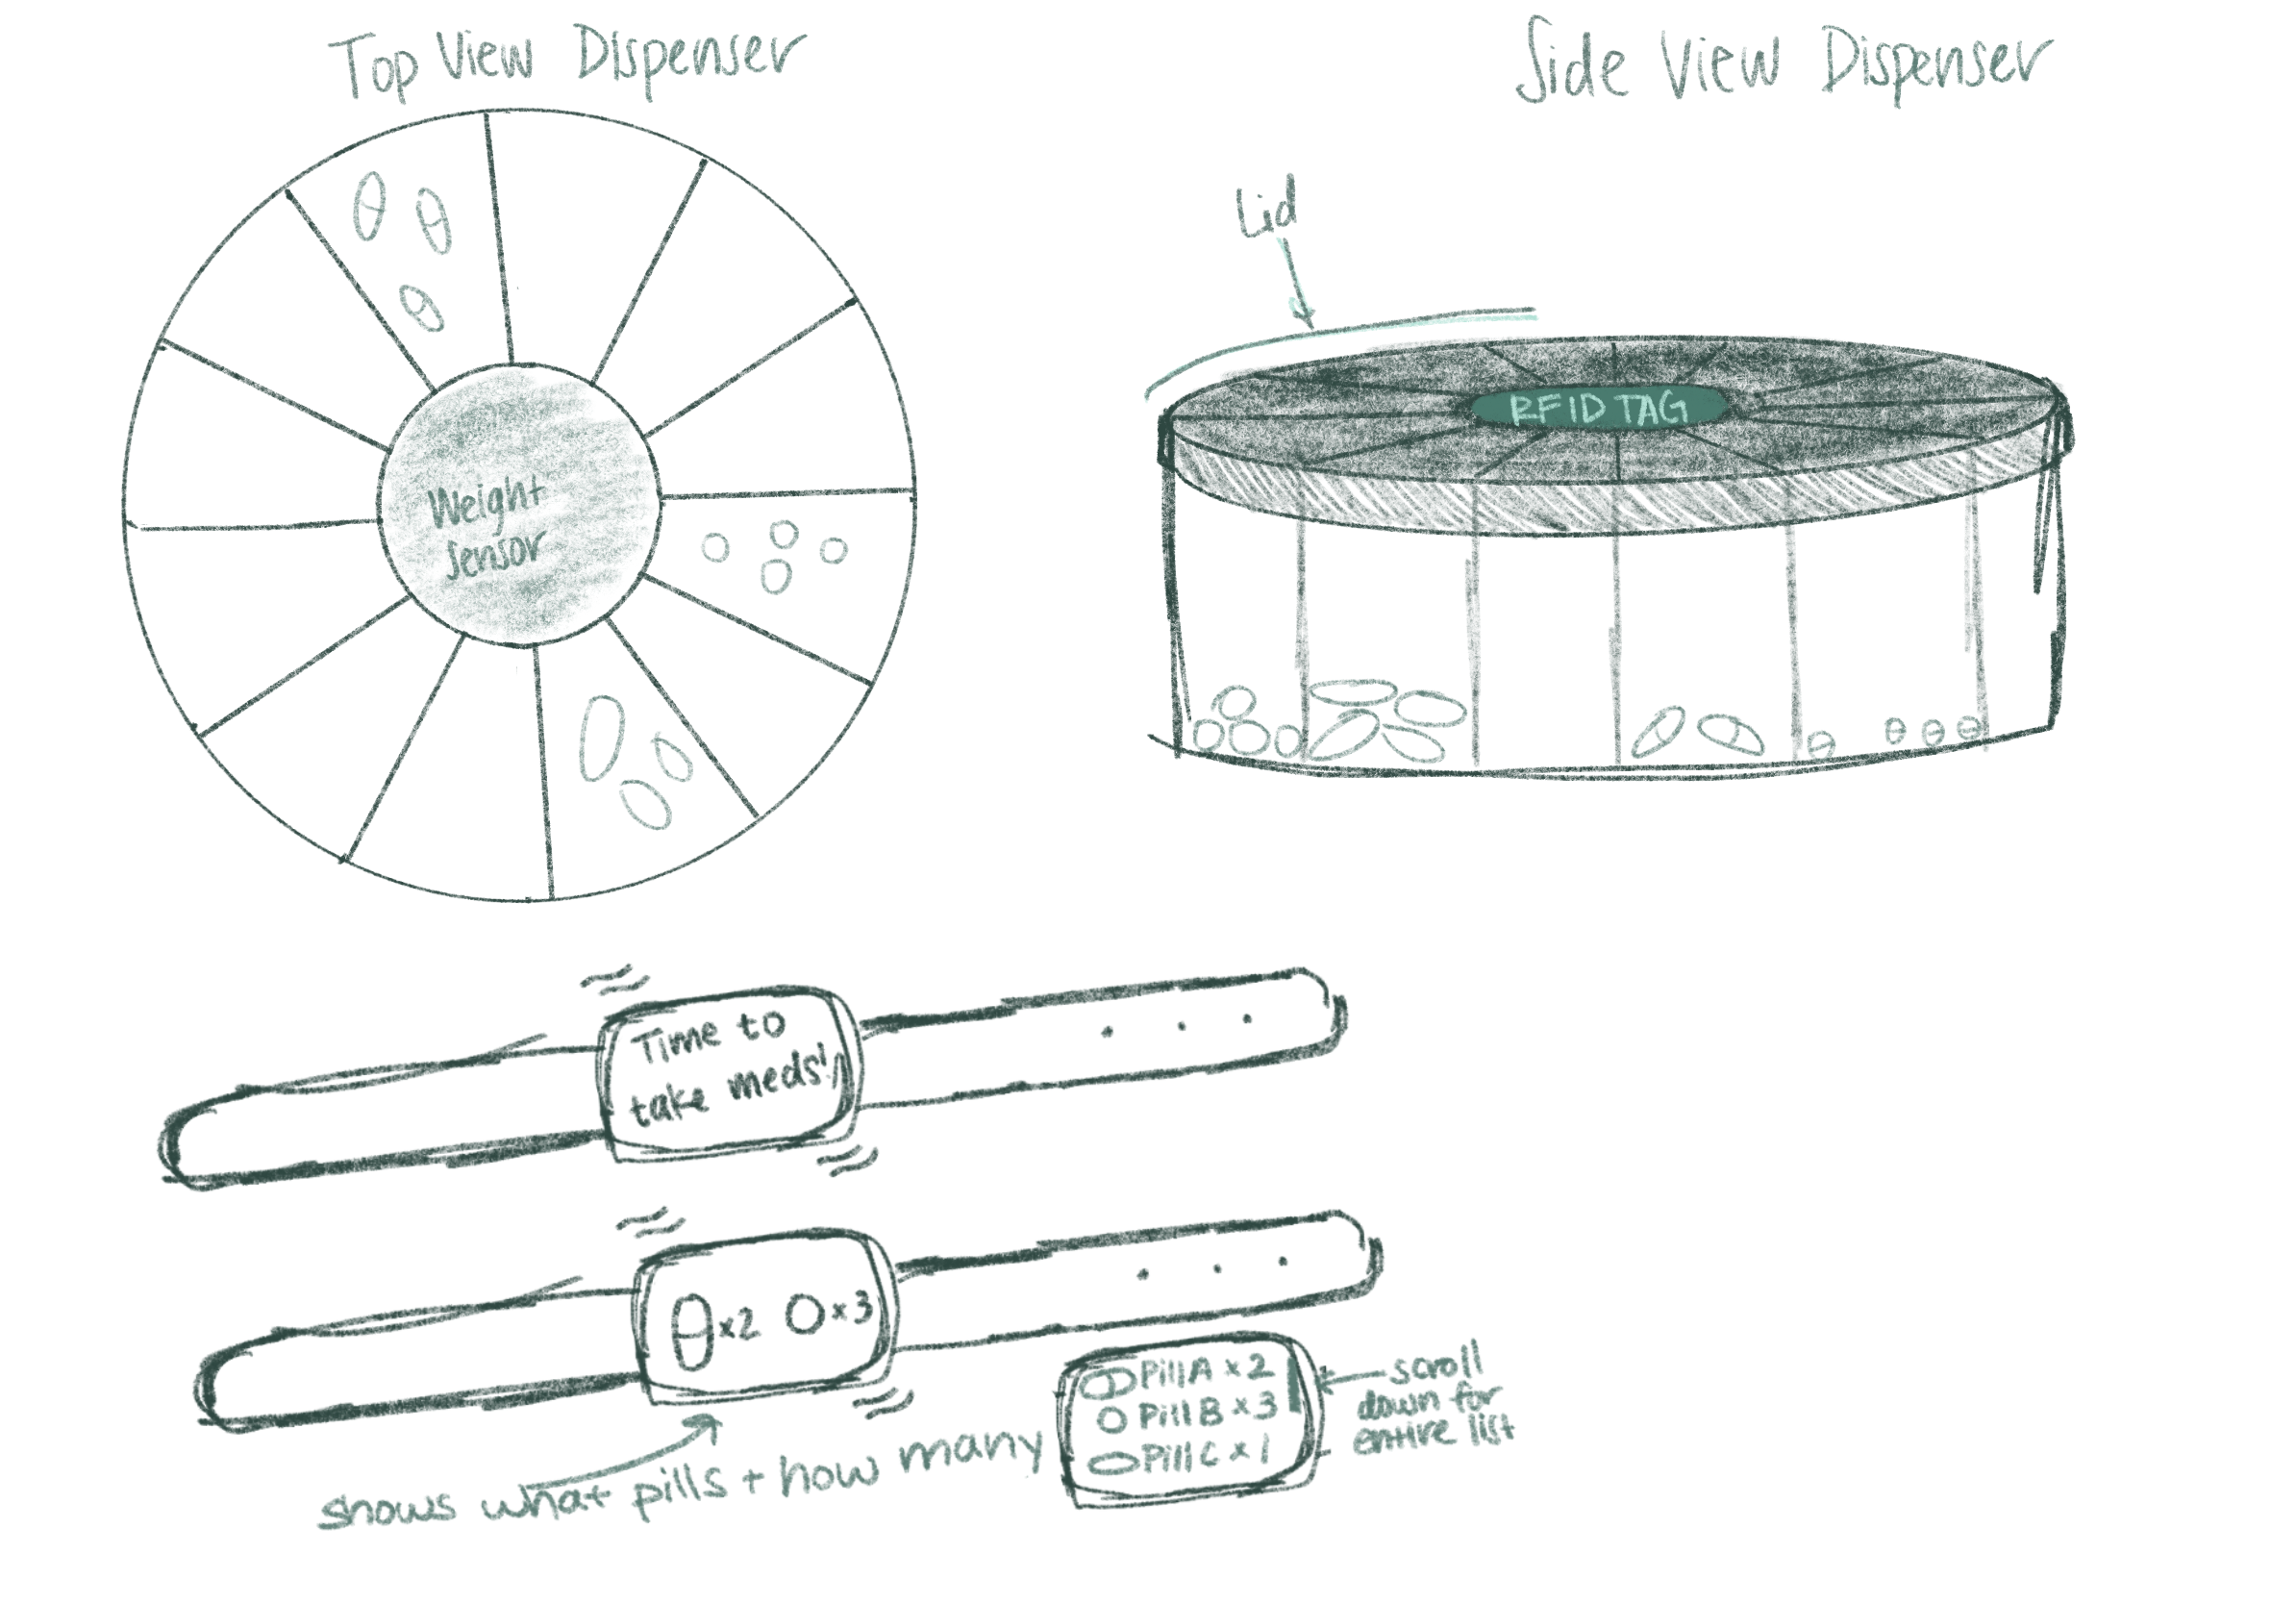 Top View Dispenser
Side View Dispenser
Lid
RFID TAG
Weight
Sensor
Time to
take meds!
x2 x3
shows what pills + how many
Pill A x 2
Pill B x 3
Pill C x 1
scroll
down for
entire list